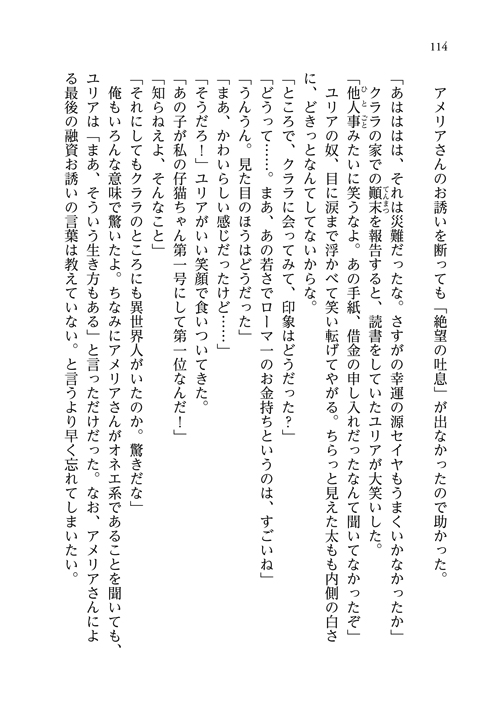 114
アメリアさんのお誘いを断っても「絶望の吐息」が出なかったので助かった。
「あははははは、それは災難だったな。さすがの幸運の源セイヤもうまくいかなかったか」
クララの家での顚末を報告すると、読書をしていたユリアが大笑いした。
「他人事みたいに笑うなよ。あの手紙、借金の申し入れだったなんて聞いてなかったぞ」
ユリアの奴、目に涙まで浮かべて笑い転げてやがる。ちらっと見えた太もも内側の白さ
に、どきっとなんてしてないからな。
「ところで、クララに会ってみて、印象はどうだった？」
「どうって……。まあ、あの若さでローマ一のお金持ちというのは、すごいね」
「うんうん。見た目のほうはどうだった」
「まあ、かわいらしい感じだったけど……」
「そうだろ！」ユリアがいい笑顔で食いついてきた。
「あの子が私の仔猫ちゃん第一号にして第一位なんだ！」
「知らねえよ、そんなこと」
「それにしてもクララのところにも異世界人がいたのか。驚きだな」
俺もいろんな意味で驚いたよ。ちなみにアメリアさんがオネエ系であることを聞いても、
ユリアは「まあ、そういう生き方もある」と言っただけだった。なお、アメリアさんによ
る最後の融資お誘いの言葉は教えていない。と言うより早く忘れてしまいたい。